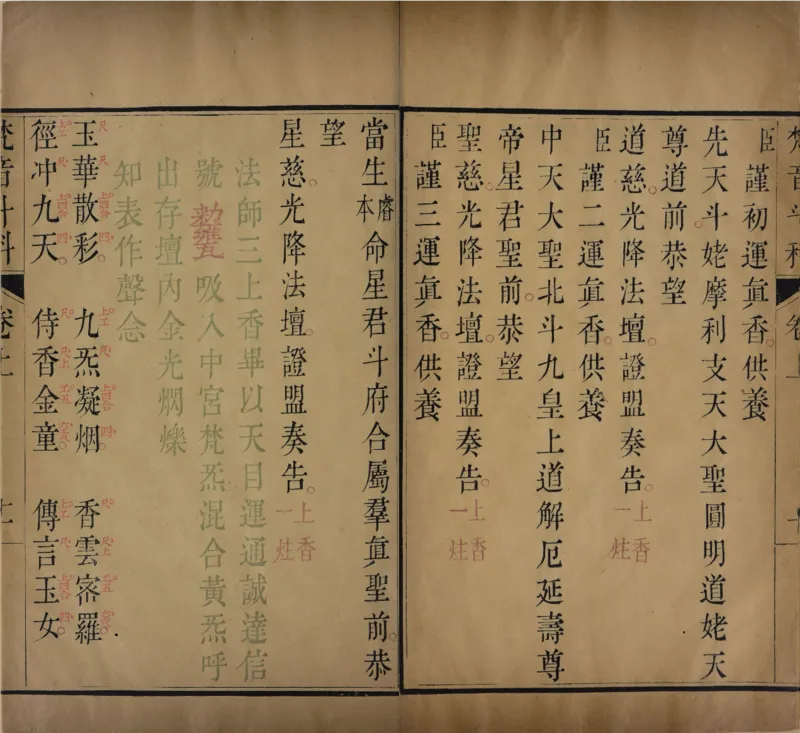 梵音斗科 卷上
臣謹初運眞香供養
先天斗姥摩利支天大聖圓明道姥天
尊道前恭望
道慈光降法壇證盟奏告 上香一炷
臣謹二運眞香供養
中天大聖北斗九皇上道解厄延壽尊
帝星君聖前恭望
聖慈光降法壇證盟奏告 上香一炷
臣謹三運眞香供養
當生本庿命星君斗府合屬羣眞聖前恭
望
星慈光降法壇證盟奏告 上香一炷
法師三上香畢以天目運通誠達信
號吸入中宮梵炁混合黃炁呼
出存壇內金光烱爍
知表作聲念
玉華散彩 九炁凝烟 香雲宻羅
徑冲九天 侍香金童 傳言玉女
梵音斗科 卷上